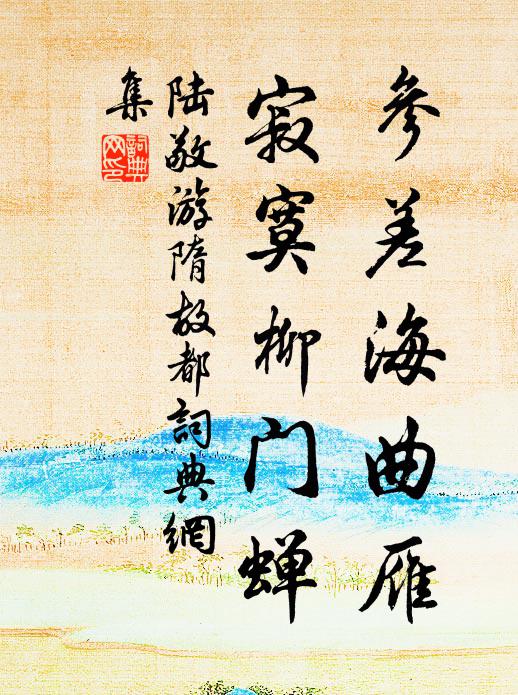 參差海曲雁
寂寞柳门蝉
陆敬游隋故都詞典網
集
詞典
网印